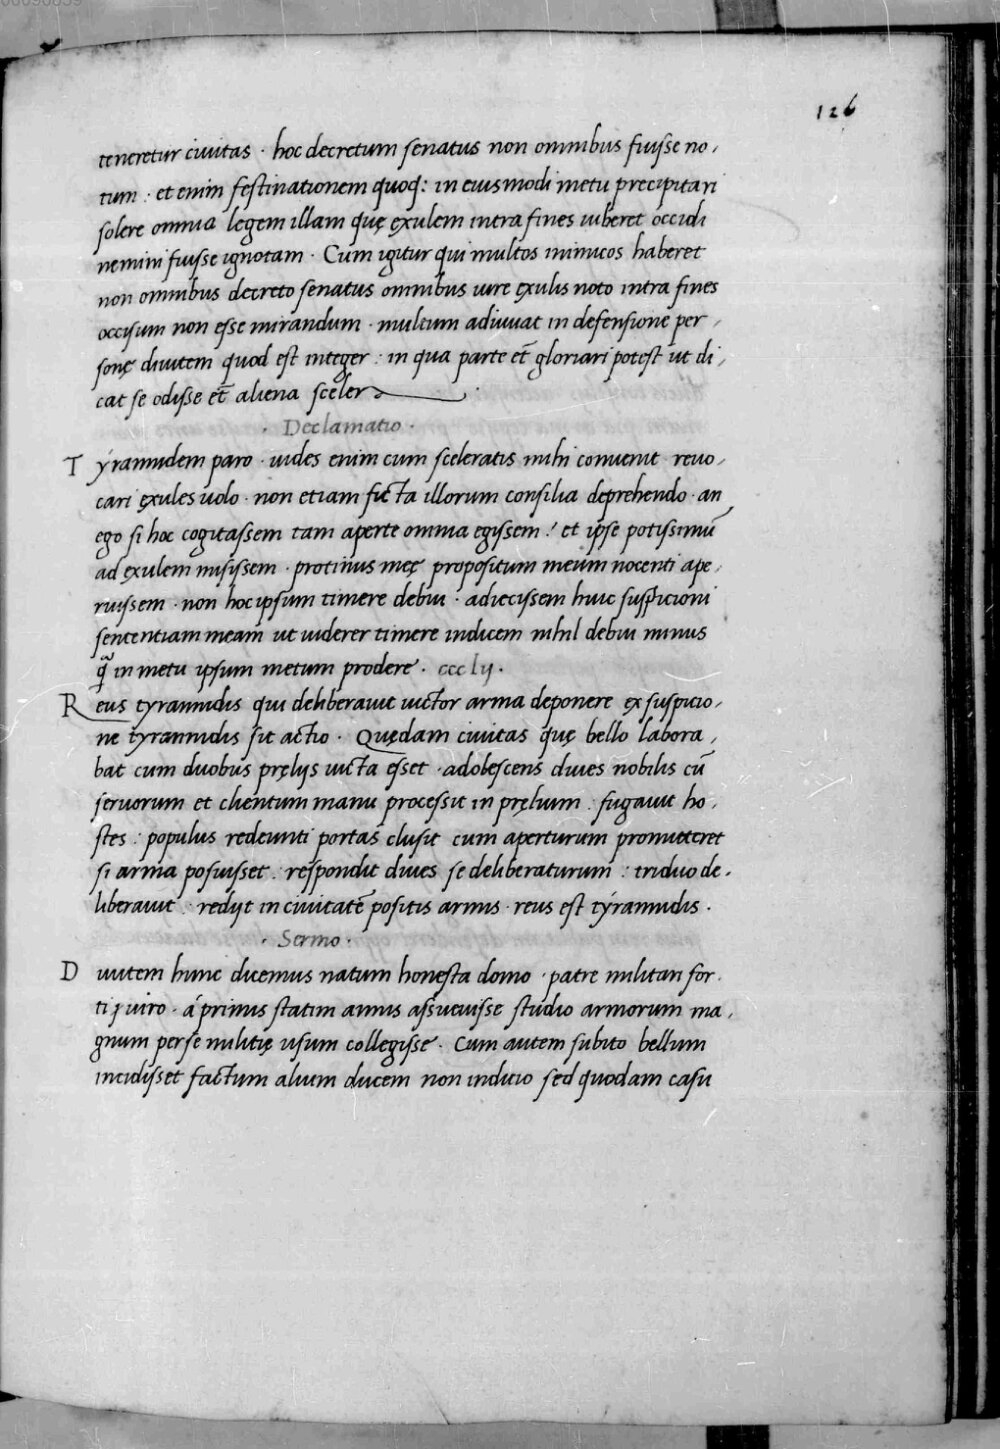 126
teneretur ciuitas · hoc decretum senatus non omnibus fuisse no,
tum · et enim festinationem quoq: in eiusmodi metu precipitari
solere omnia legem illam quę exulem intra fines iuberet occidi
nemini fuisse ignotam · Cum igitur qui multos inimicos haberet
non omnibus decreto senatus omnibus iure exulis noto intra fines
occisum non esse mirandum · multum adiuuat in defensione per,
sonę diuitem quod est integer : in qua parte et̄ gloriari potest ut di,
cat se odisse et̄ aliena sceler
· Declamatio ·
Tyrannidem paro · uides enim cum sceleratis mihi conuenit reuo,
cari exules uolo · non etiam ficta illorum consilia deprehendo · an
ego si hoc cogitassem tam aperte omnia egissem ! et ipse potissimū
ad exulem misissem · protinus męę propositum meum nocenti ape,
ruissem · non hoc ipsum timere debui · adiecissem huic suspicioni
sententiam meam ut uiderer timere indicem nihil debui minus
q̄ in metu ipsum metum prodere · ccclij ·
Reus tyrannidis qui deliberauit uictor arma deponere ex suspicio,
ne tyrannidis sit actio · Quędam ciuitas quę bello labora,
bat cum duobus pręlijs uicta esset · adolescens diues nobilis cū
seruorum et clientium manu processit in pręlium : fugauit ho,
stes : populus redeunti portas clusit cum aperturum promitteret
si arma posuisset · respondit diues se deliberaturum : triduo de,
liberauit · redijt in ciuitatē positis armis · reus est tyrannidis ·
· Sermo ·
Diuitem hunc dicemus natum honesta domo · patre militari for,
tiq; uiro · á primis statim annis assueuisse studio armorum ma,
gnum per se militię usum collegisse · Cum autem subito bellum
incidisset factum alium ducem non iudicio sed quodam casu